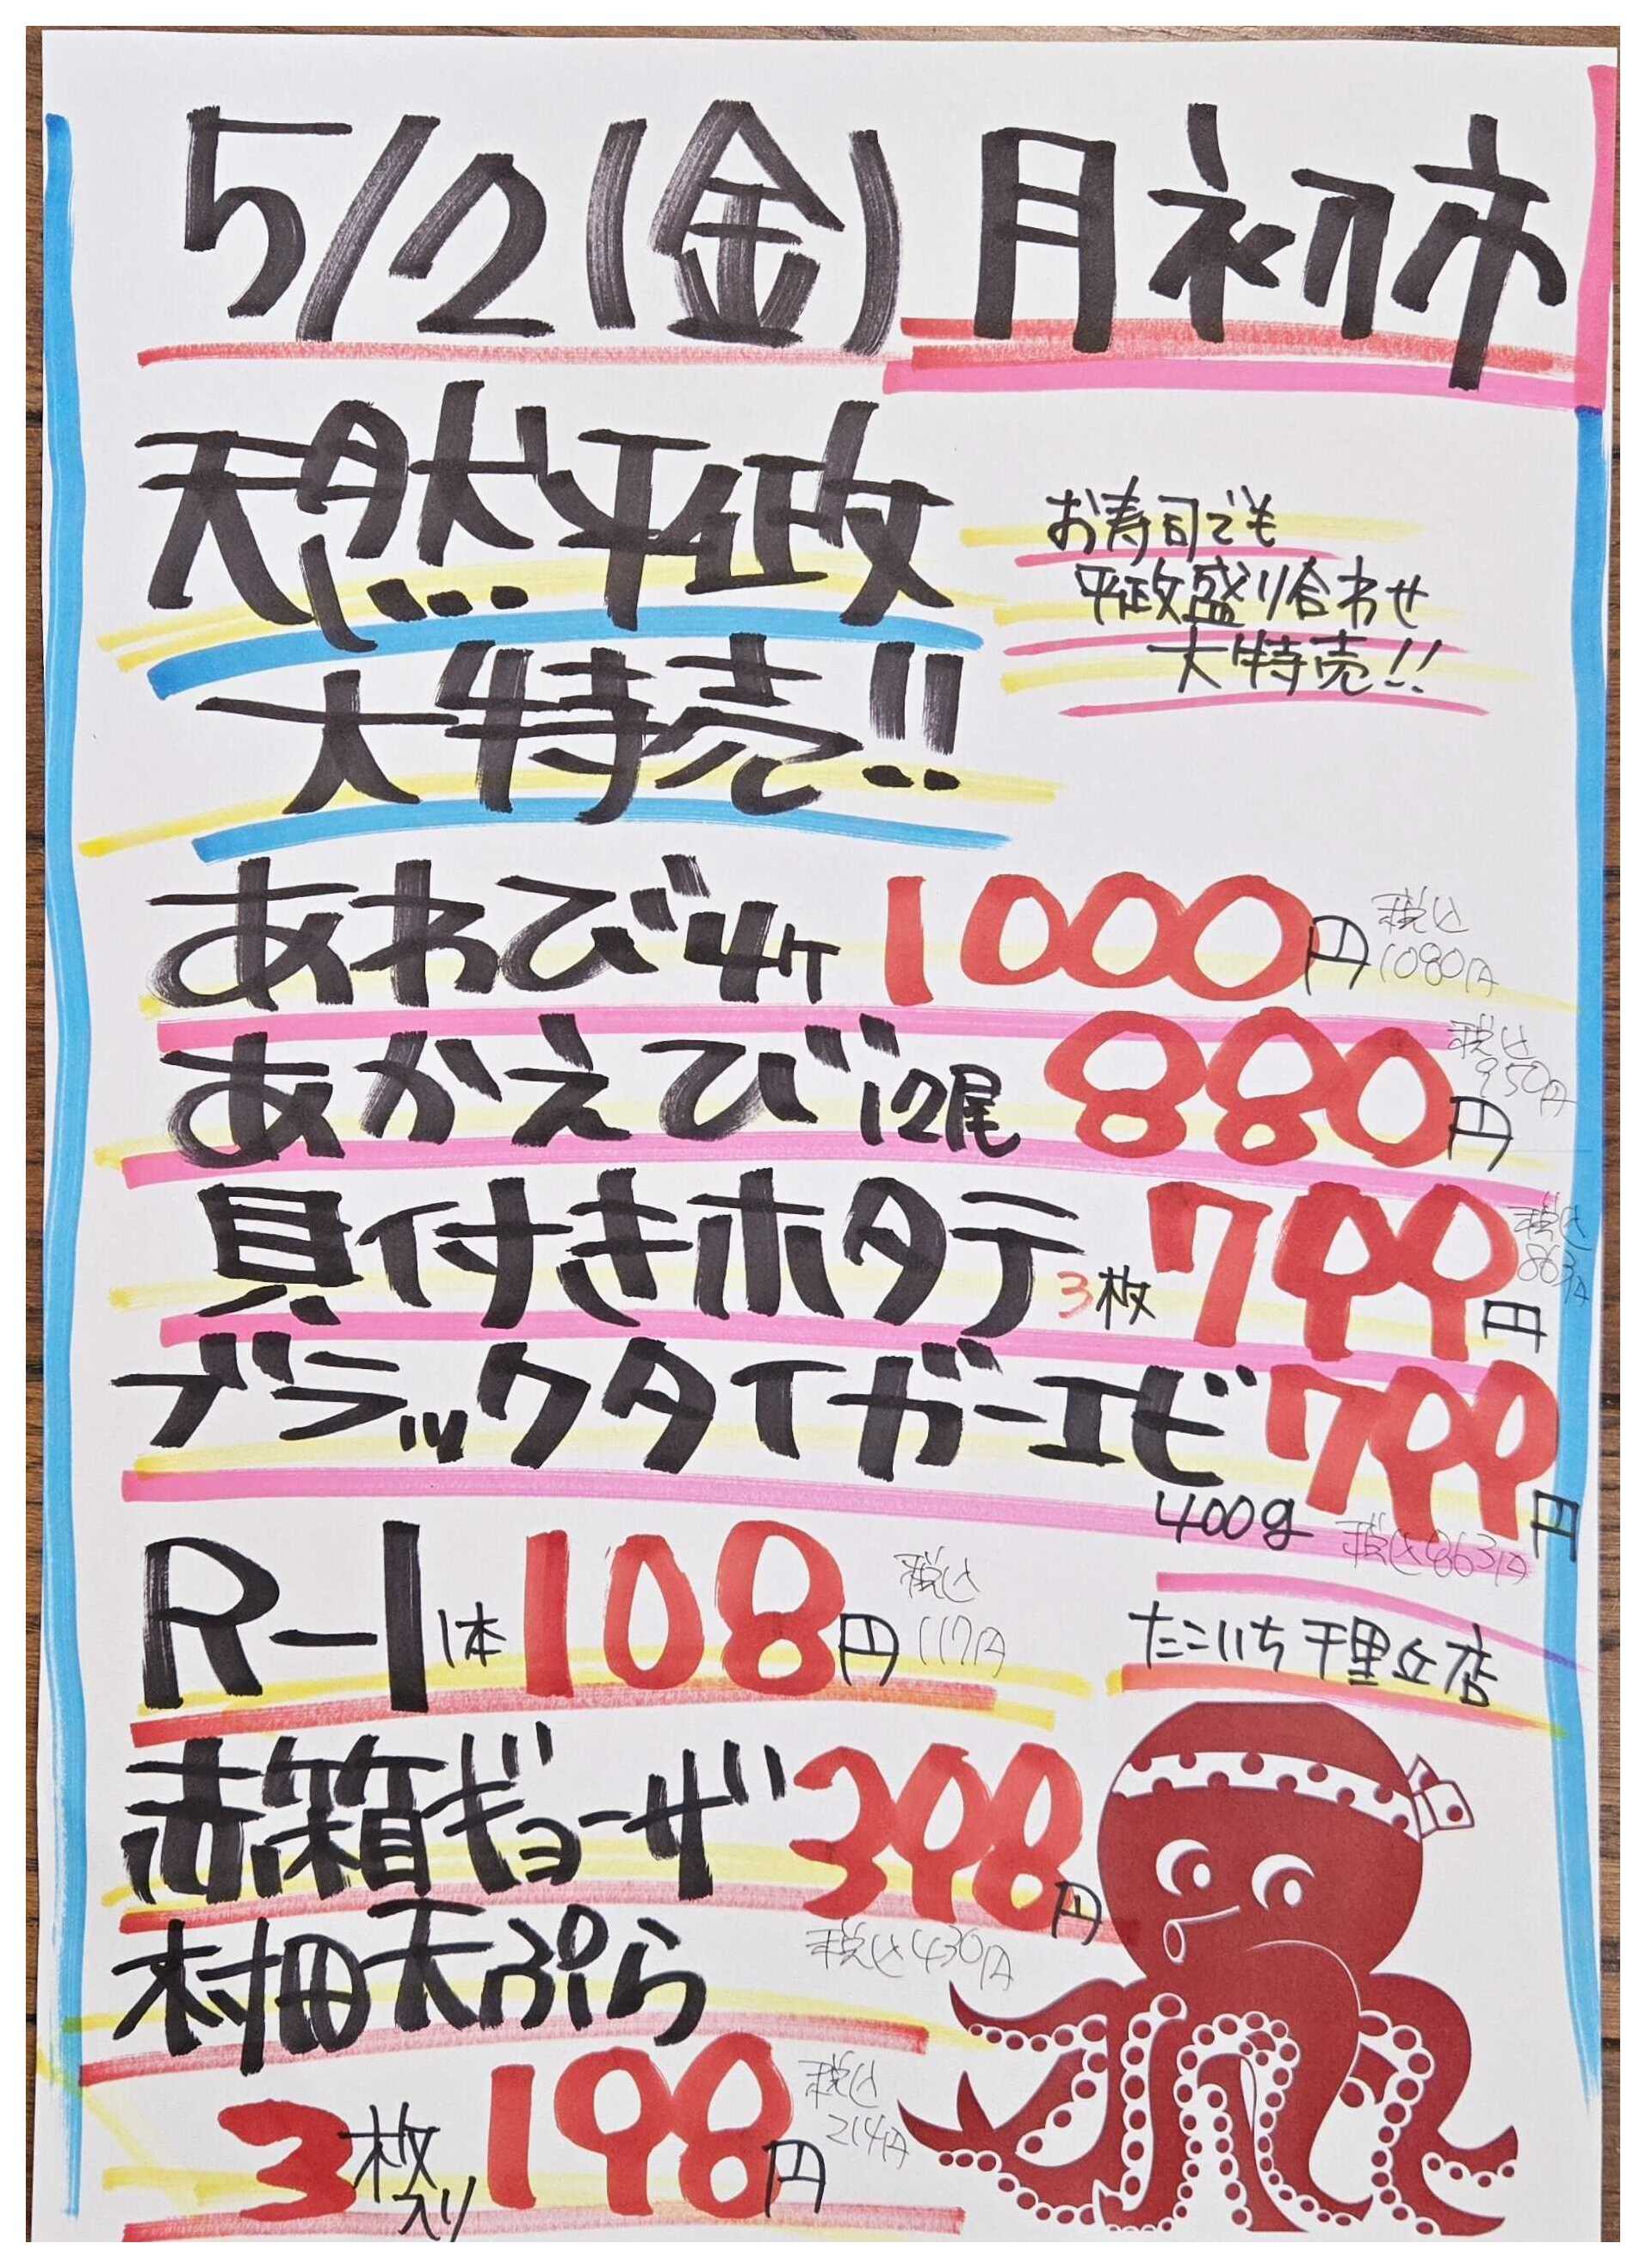 5/2(金)月初市
天然平政
大特売!!
お寿司でも
平政盛り合わせ
大特売!!
あわび4ケ 1000円 税込1080円
あかえび12尾 880円 税込950円
貝付きホタテ3枚 799円 税込863円
ブラックタイガーエビ 799円
400g 税込863円
R-1 1本 108円 税込117円
たこいち千里丘店
赤箱ギョーザ 398円
税込430円
村田天ぷら
3枚入り 198円 税込214円